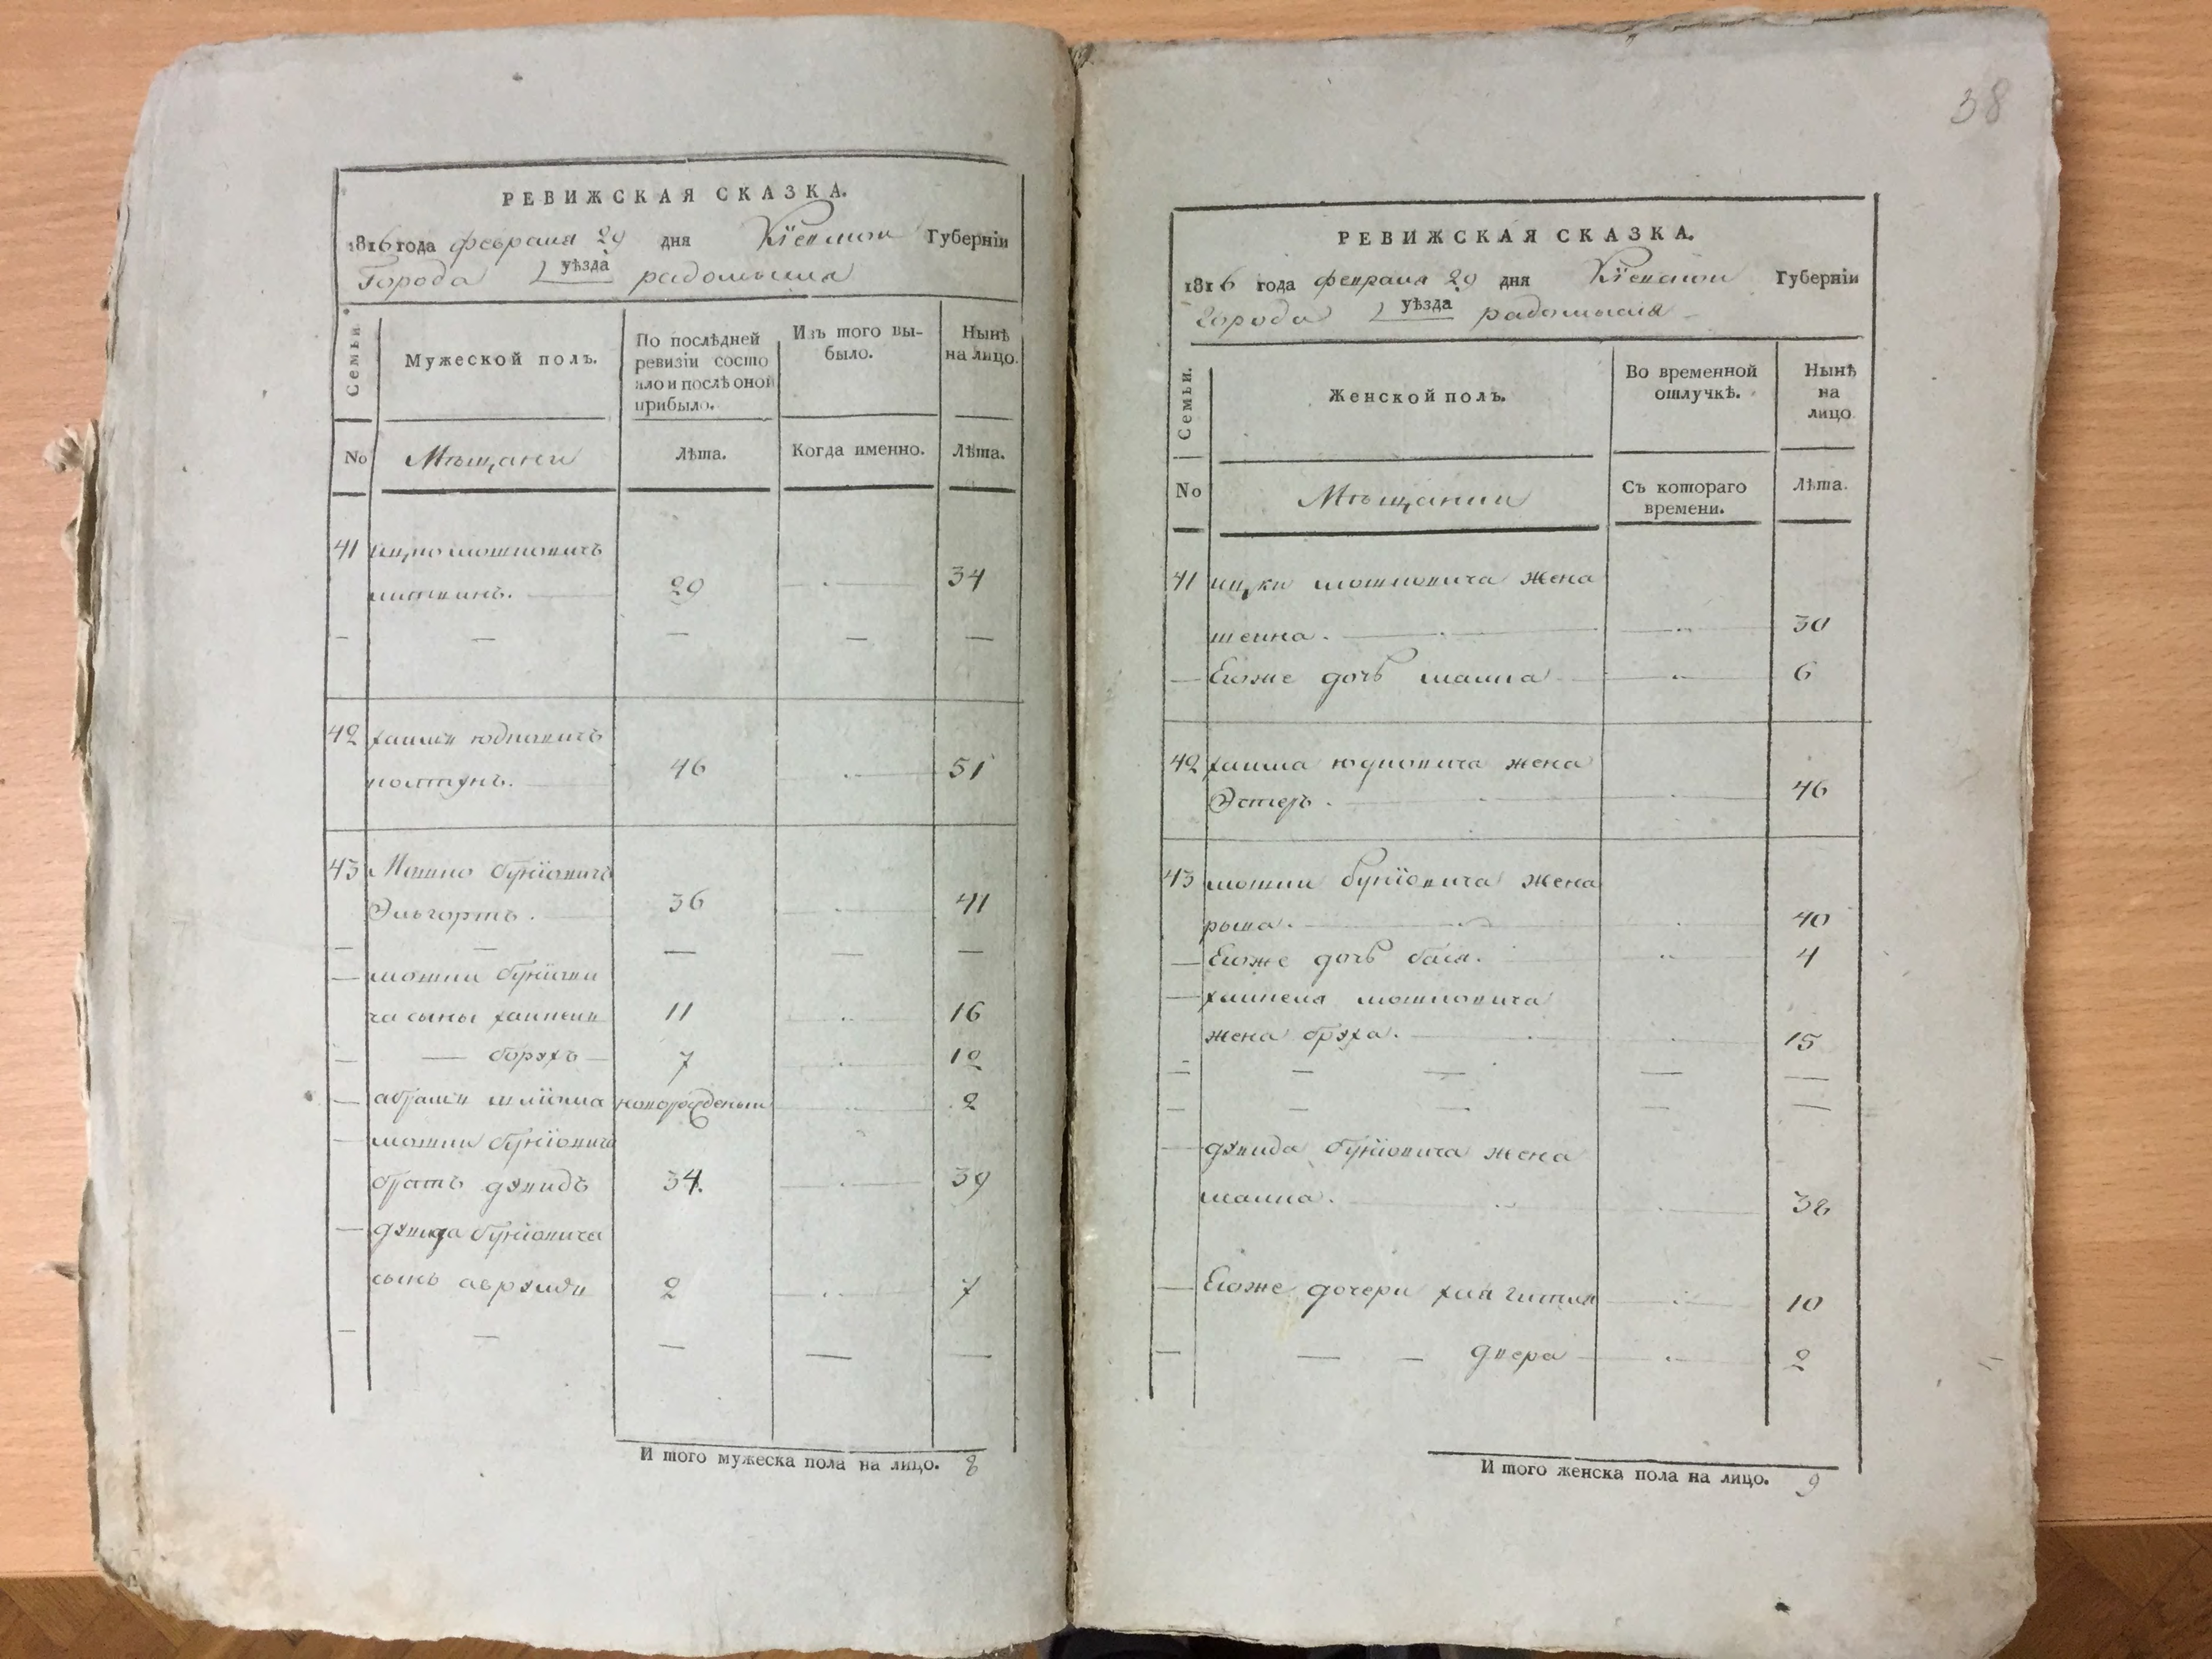 РЕВИЖСКАЯ СКАЗКА.
1816 года февраля 29 дня Кіевской Губерніи
Города уѣзда радомысля
Семьи
Мужеской полъ.
По послѣдней ревизіи состояло и послѣ оной прибыло.
Изъ того выбыло.
Нынѣ на лицо.
No Мѣщане Лѣта. Когда именно. Лѣта.
41 ицко мошковичъ
29 34
42 хаимъ юдковичъ
колтунъ. 46 51
43 Мошко бунїовичъ
Эльгортъ. 36 41
мошки бунїови
ча сыны хаикель 11 16
борухъ 7 12
абрамъ шлїома новорожденый 2
мошки бунїовича
братъ дувидъ 34. 39
дувида бунїовича
сынъ аврумъ 2 7
И того мужеска пола на лицо. 8
38
РЕВИЖСКАЯ СКАЗКА.
1816 года февраля 29 дня Кіевской Губерніи
города уѣзда радомысля
Семьи.
Женской полъ.
Во временной отлучкѣ.
Нынѣ на лицо
No Мѣщанки Съ котораго времени. Лѣта.
41 ицки мошковича жена
шейна. 30
Егоже дочь малка 6
42 хаима юдковича жена
Эстеръ. 46
43 мошки бунїовича жена
40
Егоже дочь бася. 4
хаикеля мошковича
жена бруха. 15
дувида бунїовича жена
малка. 38
Егоже дочери хая гитля 10
двера 2
И того женска пола на лицо. 9